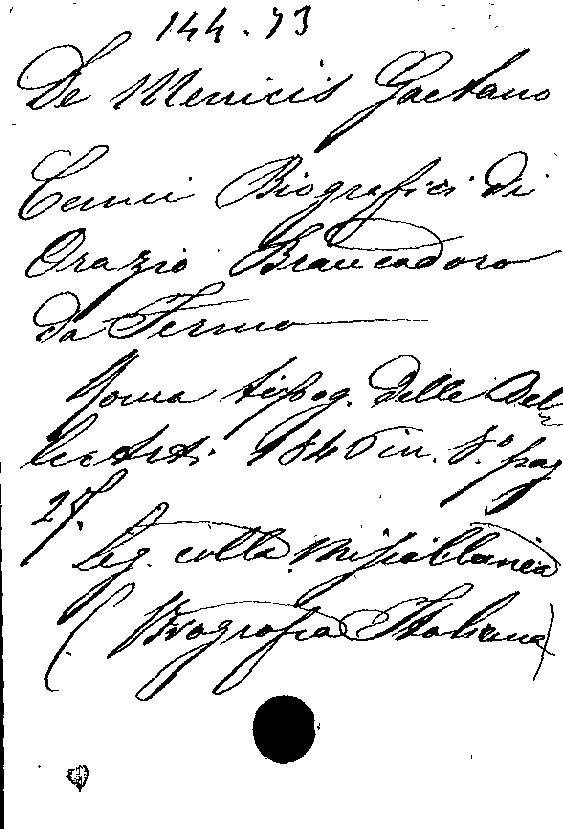 144.73
De Menicis Gaetano
Cenni Biografici di
Orazio Brancadoro
da Fermo
Roma tipog. delle Bel
le Arti. 1846 in. 8.° pag
27.
Leg. colla Miscellanea
(Biografia Italiana)